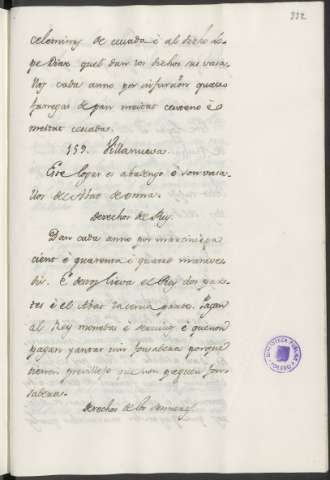 332
celemines de cevada è al dicho Lo-
pe Diaz quel dan los dichos sus vasa-
llos cada anno por infurçion quatro
fanegas de pan meitat centeno è
meitat cevada.
159. Villanueva
Este logar es abadengo è son vasa-
llos de Abat de onna.
derechos de Rey.
Dan cada anno por marciniega
cient è quarenta è quatro maravee-
dis. E destos lieva el Rey dos par-
tes è el Abat la tercia parte. Pagan
al Rey monedas è servicios è que non
pagan yantar nin fonsadera porque
tienen previllejo que non paguen fon-
sadera.
derechos de los sennores
BIBLIOTECA PUBLICA
TOLEDO